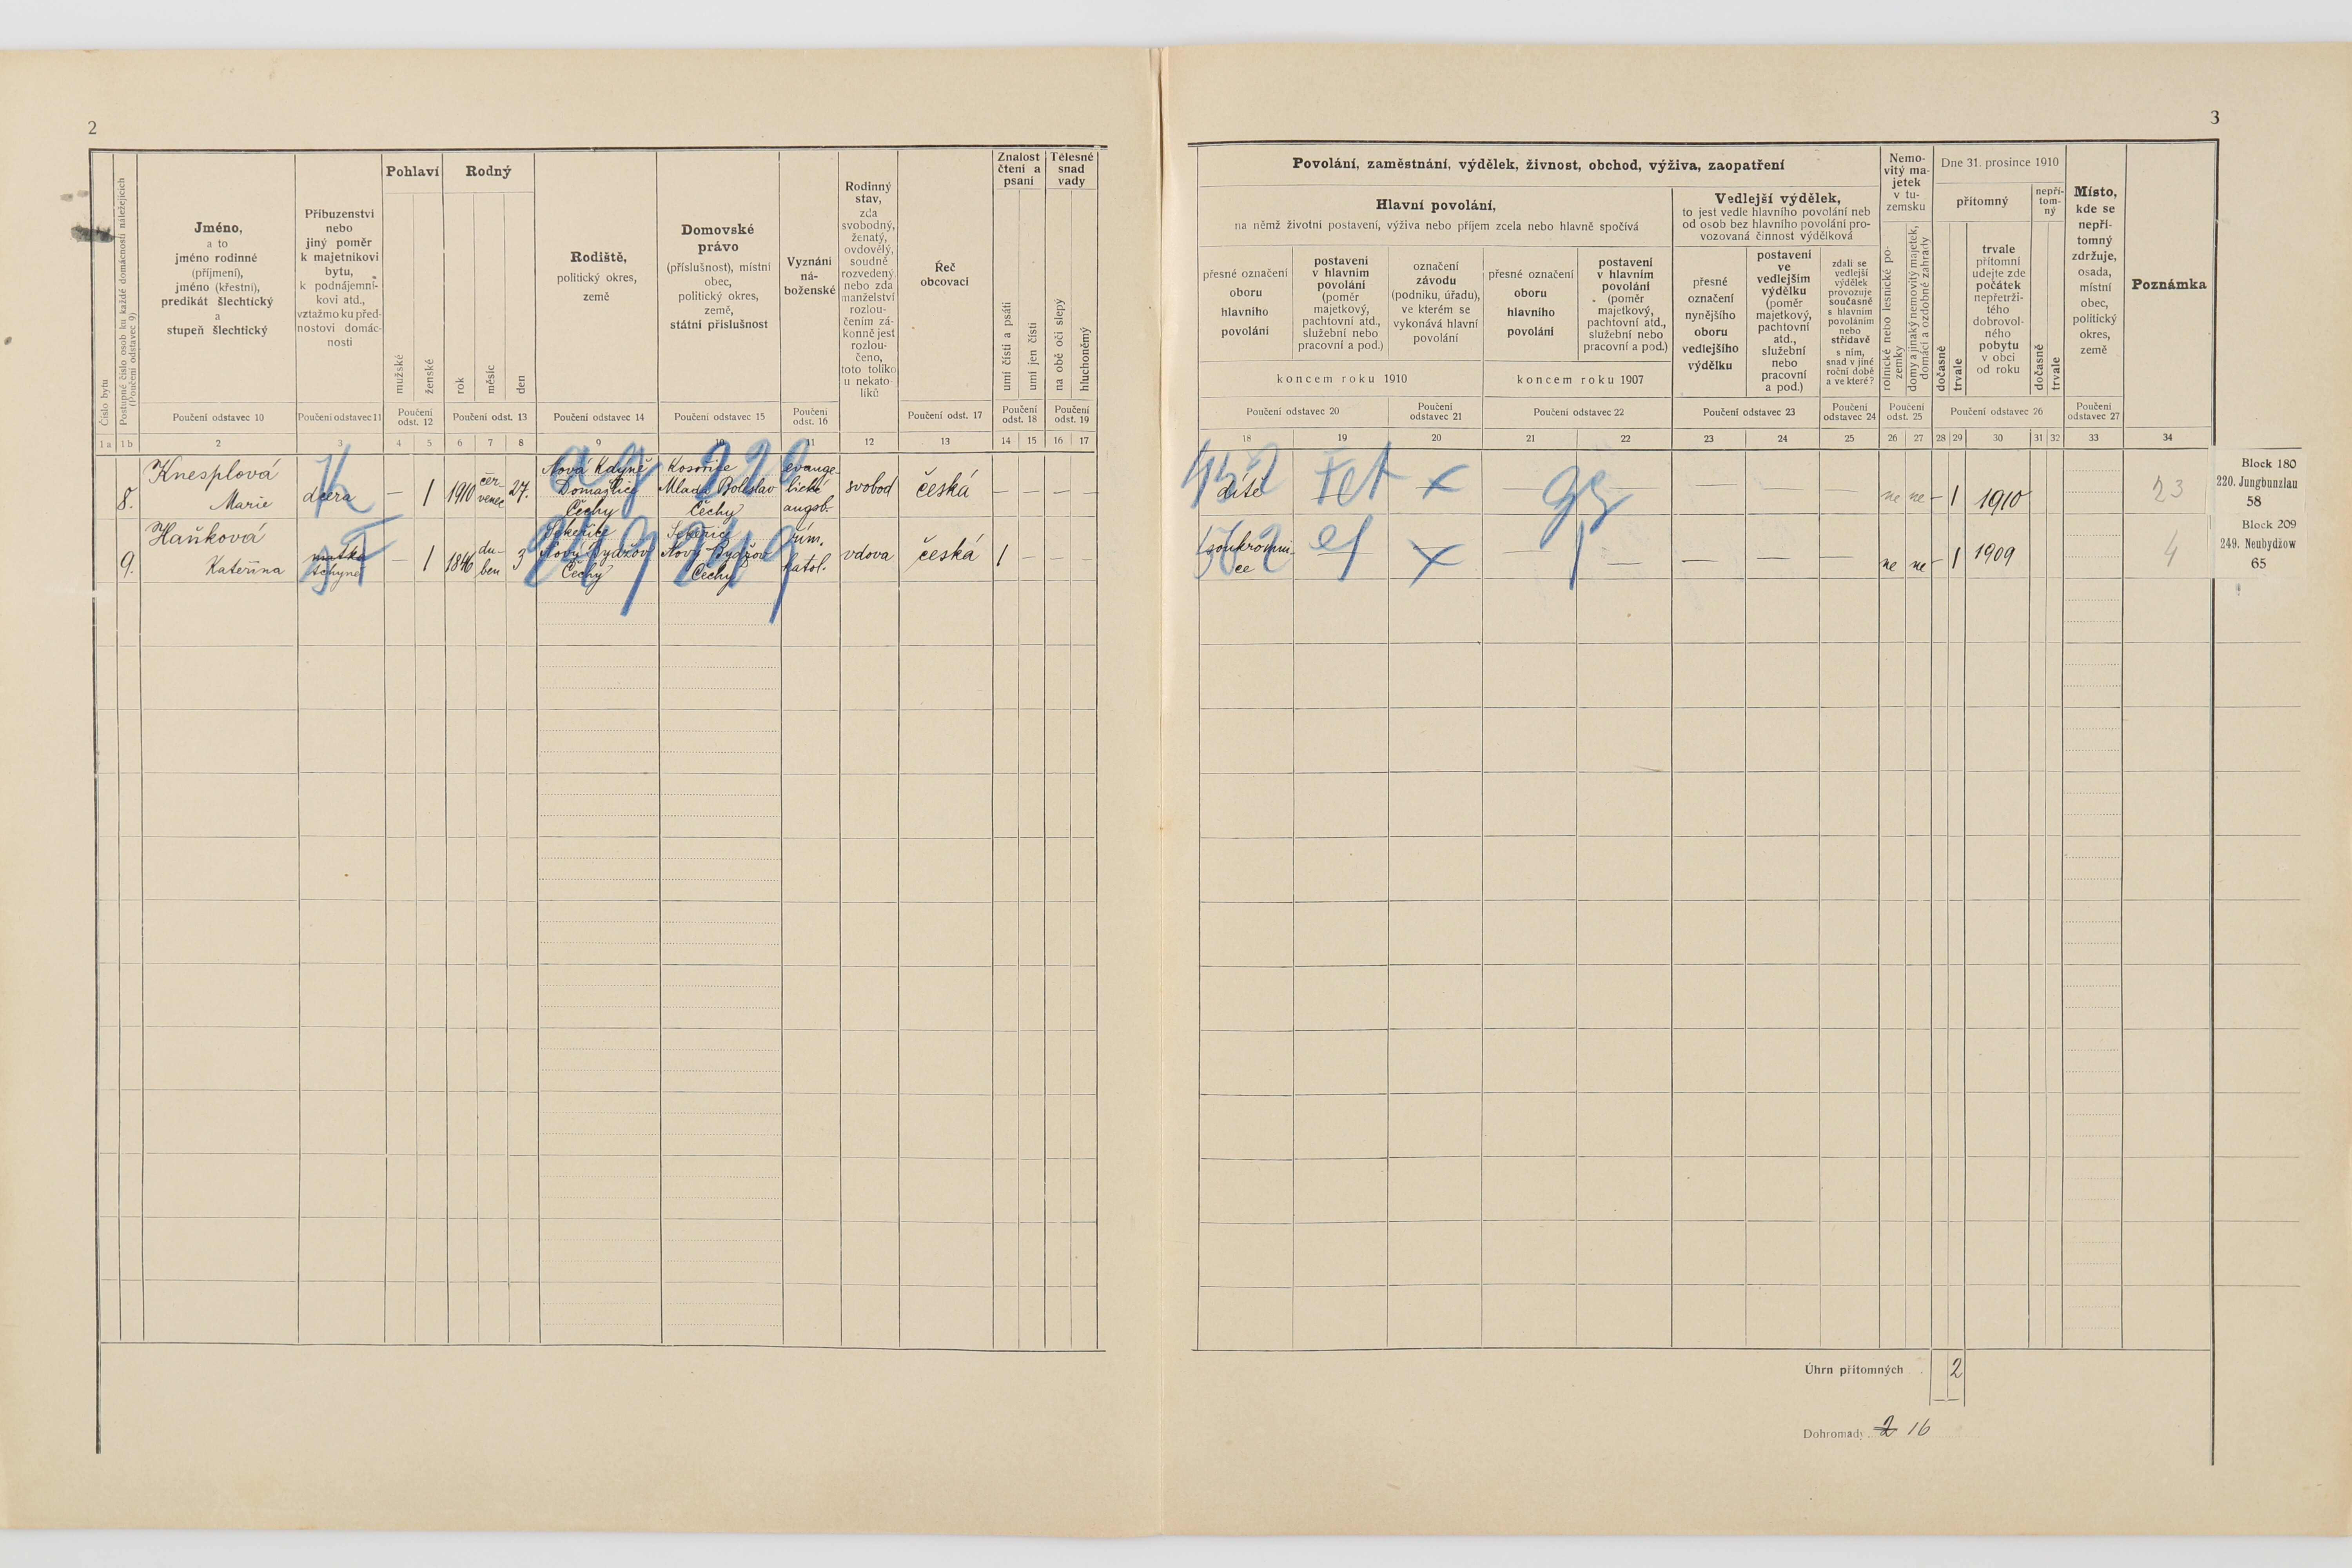 2
3
Číslo bytu
Postupné číslo osob ku každé domácnosti náležejících
(Poučení odstavec 9)
Jméno,
a to
jméno rodinné
(příjmení),
jméno (křestní),
predikát šlechtický
a
stupeň šlechtický
Poučení odstavec 10
Příbuzenství
nebo
jiný poměr
k majetníkovi
bytu,
k podnájemní-
kovi atd.,
vztažmo ku před-
nostovi domác-
nosti
Poučení odstavec 11
Pohlaví
mužské
ženské
Poučení
odst. 12
Rodný
rok
měsíc
den
Poučení odst. 13
Rodiště,
politický okres,
země
Poučení odstavec 14
Domovské
právo
(příslušnost), místní
obec,
politický okres,
země,
státní příslušnost
Poučení odstavec 15
Vyznání
ná-
boženské
Poučení
odst. 16
Rodinný
stav,
zda
svobodný,
ženatý,
ovdovělý,
soudně
rozvedený,
nebo zda
manželství
rozlou-
čením zá-
konně jest
rozlou-
čeno,
toto toliko
u nekato-
líků
Řeč
obcovací
Poučení odst. 17
Znalost
čtení a
psaní
umí čísti a psáti
umí jen čísti
Poučení
odst. 18
Tělesné
snad
vady
na obě oči slepý
hluchoněmý
Poučení
odst. 19
1 a 1 b 2 3 4 5 6 7 8 9 10 11 12 13 14 15 16 17
Povolání, zaměstnání, výdělek, živnost, obchod, výživa, zaopatření
Hlavní povolání,
na němž životní postavení, výživa nebo příjem zcela nebo hlavně spočívá
přesné označení
oboru
hlavního
povolání
postavení
v hlavním
povolání
(poměr
majetkový,
pachtovní atd.,
služební nebo
pracovní a pod.)
označení
závodu
(podniku, úřadu),
ve kterém se
vykonává hlavní
povolání
koncem roku 1910
přesné označení
oboru
hlavního
povolání
postavení
v hlavním
povolání
(poměr
majetkový,
pachtovní atd.,
služební nebo
pracovní a pod.)
koncem roku 1907
Poučení odstavec 20
Poučení
odstavec 21
Poučení odstavec 22
Vedlejší výdělek,
to jest vedle hlavního povolání neb
od osob bez hlavního povolání pro-
vozovaná činnost výdělková
přesné
označení
nynějšího
oboru
vedlejšího
výdělku
postavení
ve
vedlejším
výdělku
(poměr
majetkový,
pachtovní
atd.,
služební
nebo
pracovní
a pod.)
zdali se
vedlejší
výdělek
provozuje
současně
s hlavním
povoláním
nebo
střídavě
s ním,
snad v jiné
roční době
a ve které?
Poučení odstavec 23
Poučení
odstavec 24
Nemo-
vitý ma-
jetek
v tu-
zemsku
rolnické nebo lesnické po-
zemky
domy a jinaký nemovitý majetek,
domácí a ozdobné zahrady
Poučení
odst. 25
Dne 31. prosince 1910
přítomný
dočasně
trvale
trvale
přítomní
udejte zde
počátek
nepřetrži-
tého
dobrovol-
ného
pobytu
v obci
od roku
nepří-
tom-
ný
dočasně
trvale
Poučení odstavec 26
Místo,
kde se
nepří-
tomný
zdržuje,
osada,
místní
obec,
politický
okres,
země
Poučení
odstavec 27
Poznámka
18 19 20 21 22 23 24 25 26 27 28 29 30 31 32 33 34
8.
Knesplová
Marie
dcera
— 1 1910
čer-
venec
27.
Nová Kdyně
Domažlice
Čechy
Kosořice
Mladá Boleslav
Čechy
evange-
lické
augsb.
svobod
česká
— — — —
dítě
— — — — — — —
ne ne — 1 1910
23
Block 180
220. Jungbunzlau
58
9.
Haňková
Kateřina
matka
tchyně
— 1 1846
du-
ben
3
Sekeřice
Nový Bydžov
Čechy
Sekeřice
Nový Bydžov
Čechy
řím.
katol.
vdova
česká
1 — — —
soukromni-
ce
— — — — —
ne ne — 1 1909
4
Block 209
249. Neubydžow
65
ag
220
249
249
Úhrn přítomných 2
Dohromady 2 16